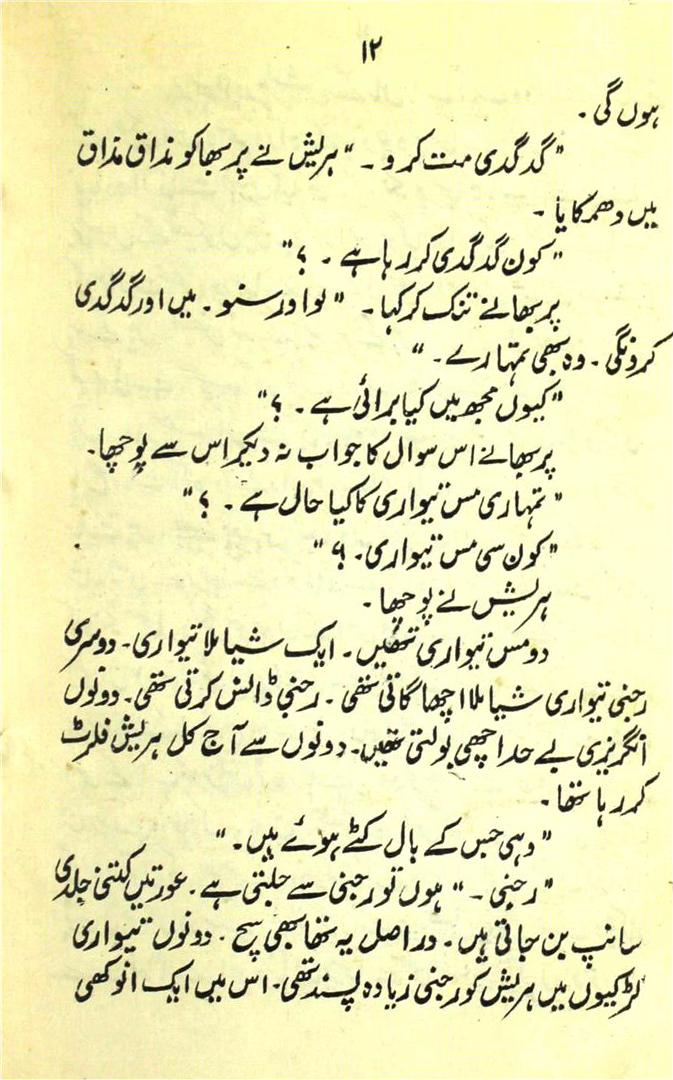 ۱۲
ہوں گی۔
"گدگدی مت کرو۔" ہریش نے پربھا کو مذاق مذاق
میں دھمکایا۔
"کون گدگدی کر رہا ہے۔ ؟"
پربھا نے تنک کر کہا۔ "لو اور سنو۔ میں اور گدگدی
کرونگی۔ وہ بھی تمہارے۔"
"کیوں مجھ میں کیا برائی ہے۔ ؟"
پربھا نے اس سوال کا جواب نہ دیکر اس سے پوچھا۔
"تمہاری مس تیواری کا کیا حال ہے۔ ؟"
"کون سی مس تیواری۔ ؟"
ہریش نے پوچھا۔
دو مس تیواری تھیں۔ ایک شیاملا تیواری۔ دوسری
رجنی تیواری شیاملا اچھا گاتی تھی۔ رجنی ڈانس کرتی تھی۔ دونوں
انگریزی بے حد اچھی بولتی تھیں۔ دونوں سے آج کل ہریش فلرٹ
کر رہا تھا۔
"وہی جس کے بال کٹے ہوئے ہیں۔"
"رجنی۔" ہوں تو رجنی سے جلتی ہے۔ عورتیں کتنی جلدی
سانپ بن جاتی ہیں۔ دراصل یہ تھا بھی سچ۔ دونوں تیواری
لڑکیوں میں ہریش کو رجنی زیادہ پسند تھی۔ اس میں ایک انوکھی